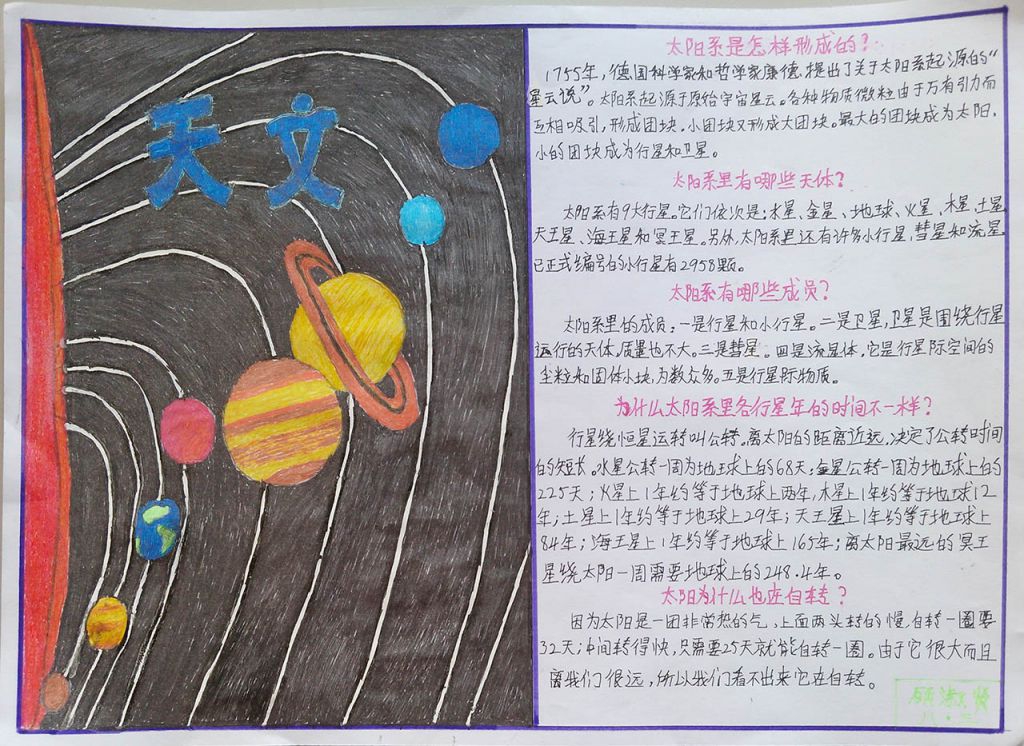 天文
太阳系是怎样形成的?
1755年,德国科学家和哲学家康德,提出了关于太阳系起源的“
星云说”。太阳系起源于原始宇宙星云。各种物质微粒由于万有引力而
互相吸引,形成团块。小团块又形成大团块。最大的团块成为太阳,
小的团块成为行星和卫星。
太阳系里有哪些天体?
太阳系有9大行星。它们依次是:水星、金星、地球、火星、木星、土星
天王星、海王星和冥王星。另外,太阳系里还有许多小行星,彗星和流星,
已正式编号的小行星有2958颗。
太阳系有哪些成员?
太阳系里的成员:一是行星和小行星。二是卫星,卫星是围绕行星
运行的天体,质量也不大。三是彗星。四是流星体,它是行星际空间的
尘粒和固体小块,为数众多。五是行星际物质。
为什么太阳系里各行星年的时间不一样?
行星绕恒星运转叫公转。离太阳的距离近远,决定了公转时间
的短长。水星公转一周为地球上的68天;金星公转一周为地球上的
225天;火星上1年约等于地球上两年,木星上1年约等于地球12
年;土星上1年约等于地球上29年;天王星上1年约等于地球上
84年;海王星上1年约等于地球上165年;离太阳最远的冥王
星绕太阳一周需要地球上的248.4年。
太阳为什么也在自转?
因为太阳是一团非常热的气,上面两头转的慢,自转一圈要
32天;中间转得快,只需要25天就能自转一圈。由于它很大而且
离我们很远,所以我们看不出来它在自转。